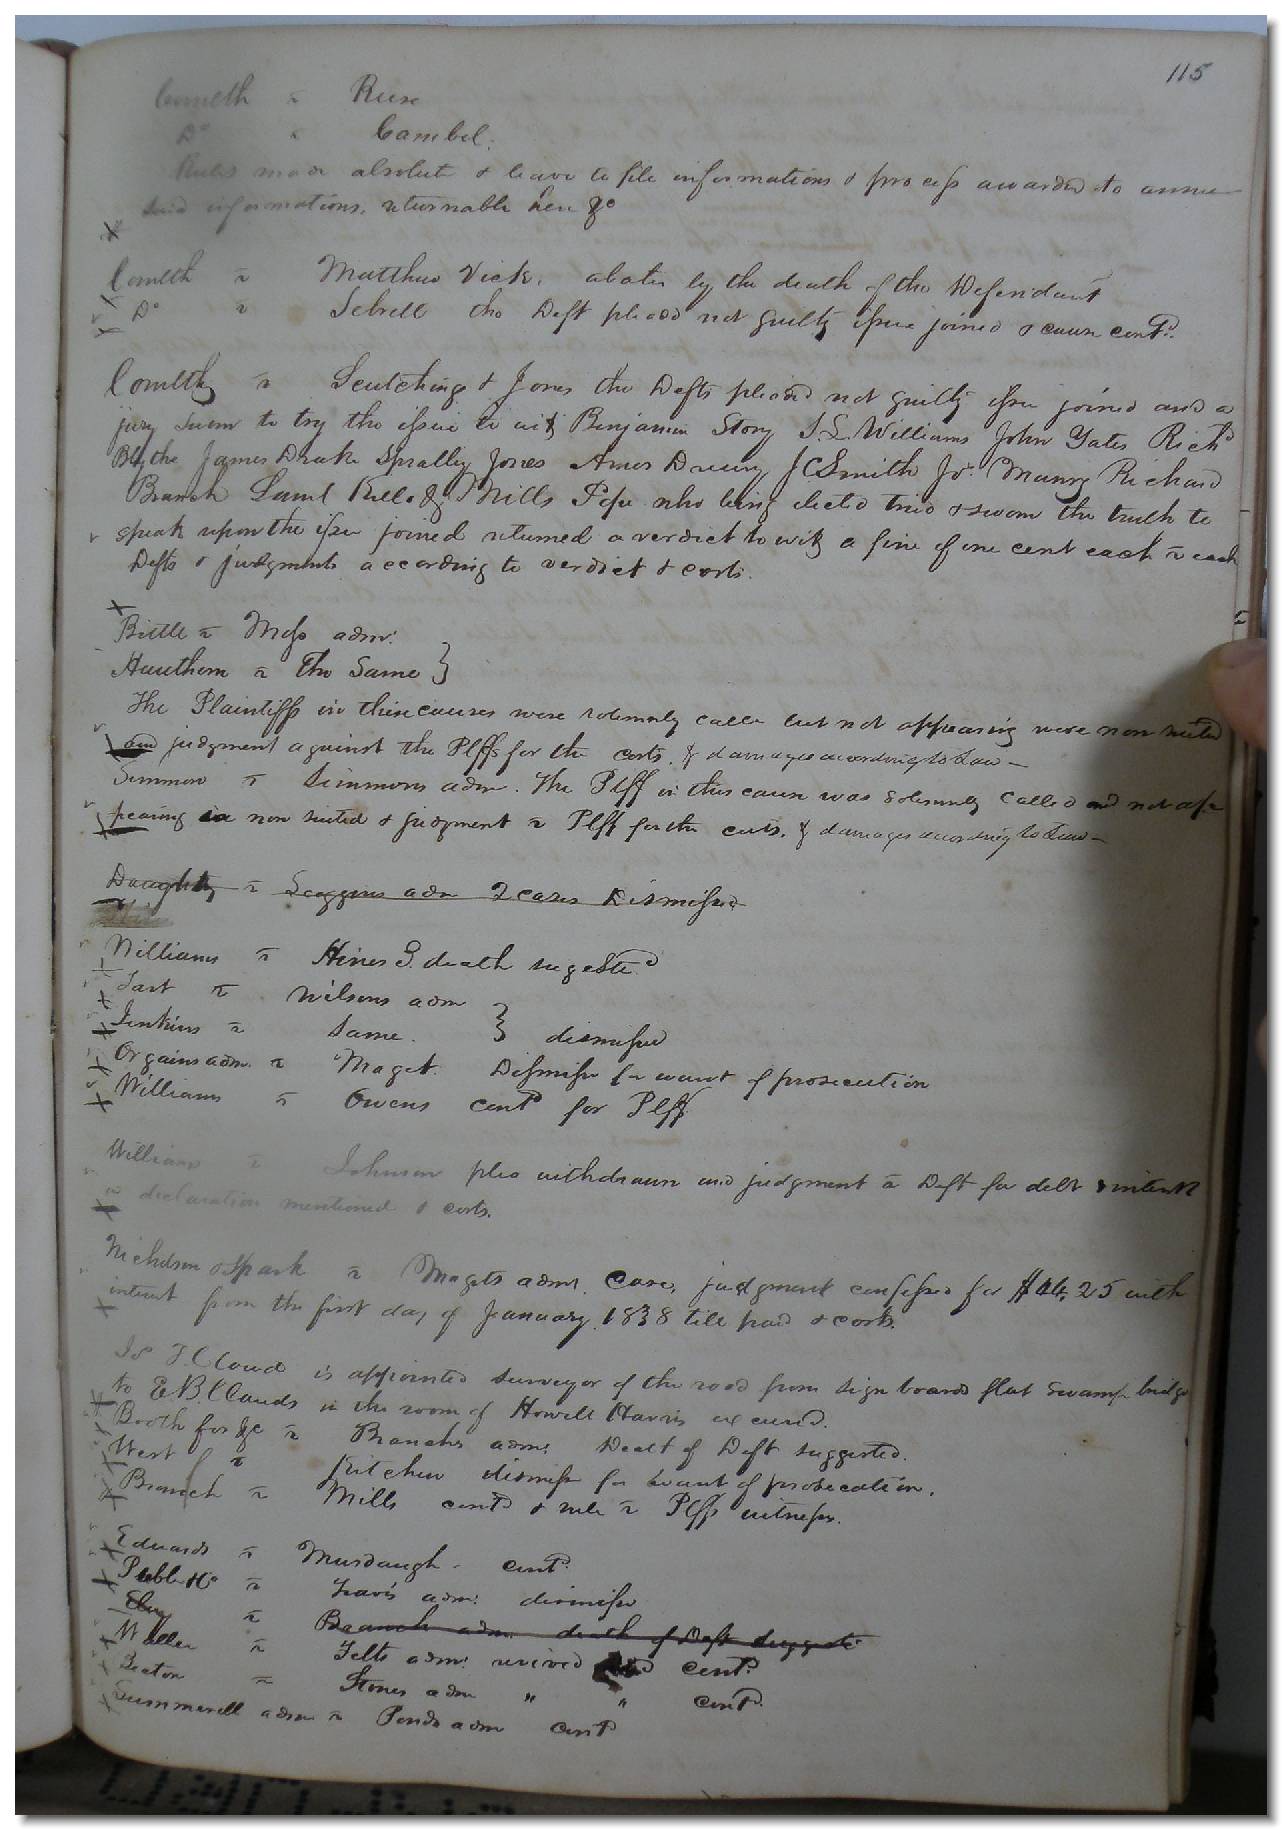 115
Comlth v Reese
Do v Cambel.
Rules made absolute & leave to file informations & process awarded to answer
said informations, returnable here &c
Comlth v Matthew Vick. abates by the death of the Defendant
Do v Sebrell the Deft pleaded not guilty issue joined & cause contd.
Comlth v Scutchings & Jones the Defts pleaded not guilty issue joined and a
jury sworn to try the issue to wit Benjamin Story J. S. Williams John Yates Richd
Blythe James Drake Spratley Jones Amos Drewry J C Smith Jr. Manry Richard
Branch Saml Kello & Mills Pope who being elected tried & sworn the truth to
speak upon the issue joined returned a verdict to wit a fine of one cent each v each
Defts & judgments according to verdict & costs.
Bittle v Moss admr.
Hawthorn v The Same }
The Plaintiffs in these causes were solemnly called but not appearing were non suited
and judgment against the Plffs for the costs. & damages according to Law—
Simmons v Simmons admr. The Plff in this cause was solemnly called and not ap
pearing is non suited & judgment v Plff for the costs. & damages according to Law—
Daughty v Scoggins adm 2 cases Dismissed
Williams v Hines S. death sugested
Tart v Wilsons adm
Jenkins v Same } dismissed
Orgains adm. v Maget. Dismiss for want of prosecution
Williams v Owens contd for Plff
Williams v Johnson plea withdrawn and judgment v Deft for debt & interest
in declaration mentioned & costs.
Nicholson & Spark v Magets admr. Case, judgment confessed for $44.25 with
interest from the first day of January 1838 till paid & costs.
J. T. Claud is appointed surveyor of the road from sign boards flat swamp bridge
to E. B. Clauds in the room of Howell Harris excused.
Booth for &c v Branchs admr. Death of Deft suggested.
West v Kitchen dismiss for want of prosecution.
Branch v Mills contd & rule v Plffs witness.
Edwards v Murdaugh - contd.
Peeble & Co v Travis admr. dismiss
Eley v Branch adm. death of Deft suggests
Waller v Felts admr. revived and contd.
Beaton v Stones adm " " contd.
Summerell adm v Ponds adm contd